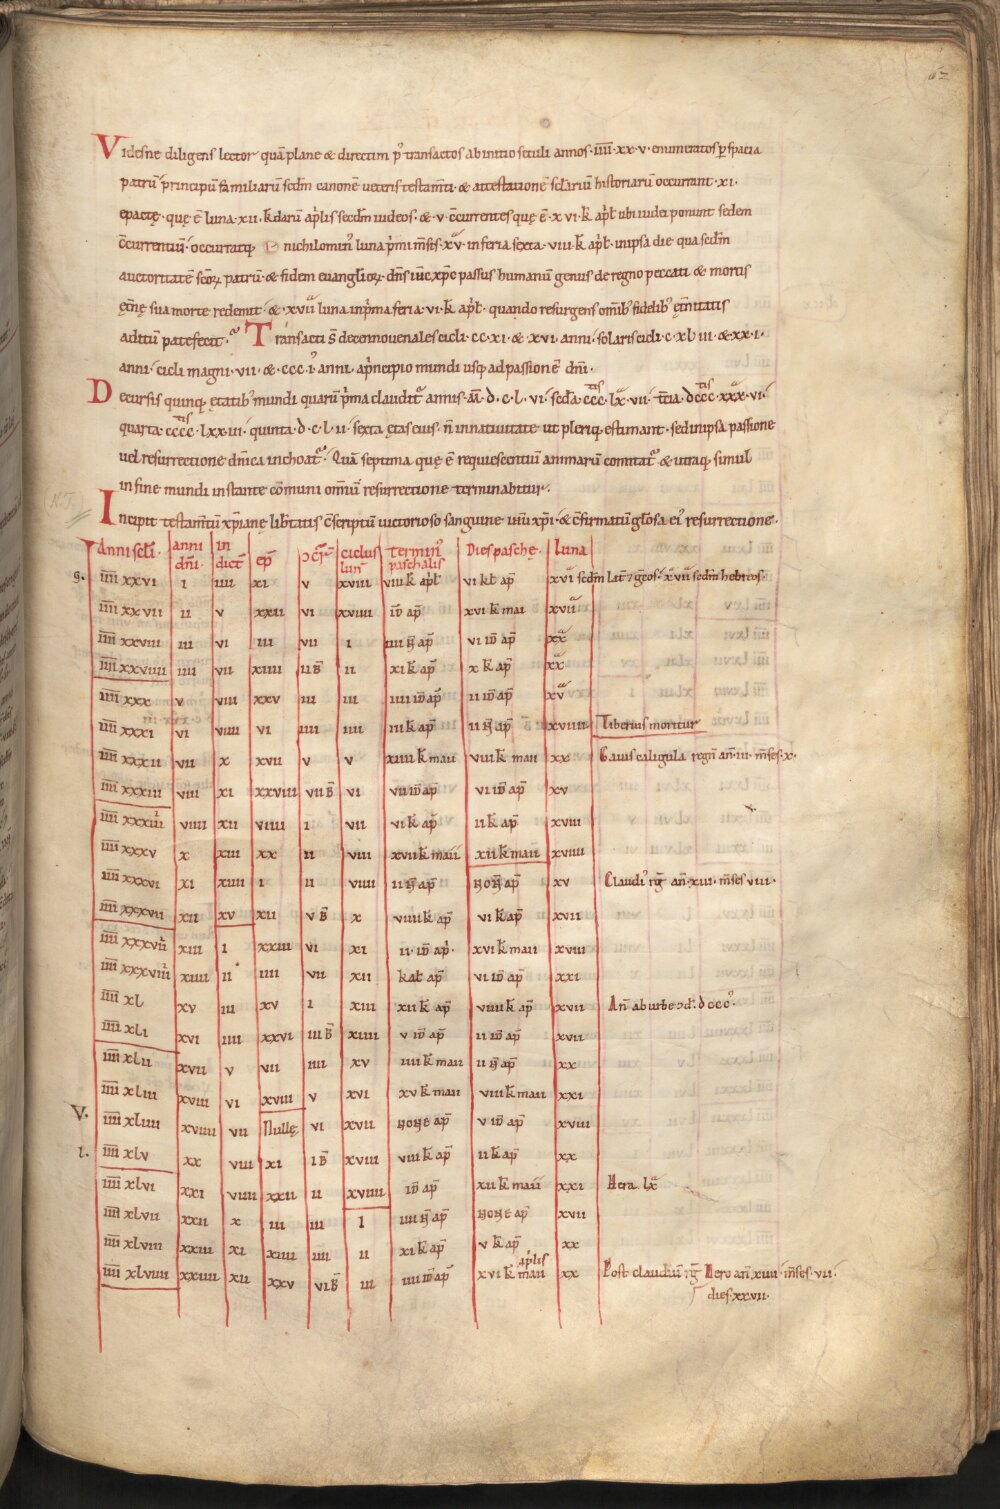 62
Videsne diligens lector quā plane & directim p' transactos ab initio seculi annos· īīīī·xx·v· enumeratos p spacia
patrū principum familiarū scdm canonē veteris testam̄ti· & attestationē sc̄larium historiarū occurrant·xi·
epactę· quę ē luna·xii· k̄daru ap'lis secdm iudeos· & ·v· c̄currentes quę ē·xvi k̄ ap'l· ubi iudei ponunt sedem
c̄currentiū· occurratq; nichilomin' luna p'mi m̄ses·xv· in feria sexta·viii·k̄ ap'l· in ipsa die qua scdm
auctoritatē sc̄oꝝ patrū· & fidem euangl'ioꝝ· dn̄s ih̄c xp̄c passus humanū genus de regno peccati & mortis
ęt̄nę sua morte redemit· & ·xvii luna in p'ma feria·vi·k̄ ap'l· quando resurgens om̄ib' fidelib' ęt̄nitatis
aditū patefecit· Transacti s̄ decennovenales cicli·cc·xi· & xvi· anni· solaris cicli·c·xliii· & xx·i·
anni· cicli magni·vii· & ·ccc·i' anni· ap'ncipio mundi usq; ad passionē dn̄i·
Decursis quinq; ętatib' mundi quarū p'ma claudit' annis· ·d·c·l·vi· sec̄da·ccc·lx·vii· t̄cia·dcccc·xxx·vi·
quarta·cccc·lxx·iii· quinta·d·c·l·ii· sexta ętas eius· n̄ in nativitate ut pleriq; estimant· sed in ipsa passione
uel resurrectione dn̄ica inchoat'· Quā septima quę ē requiescentiū animarū comitat' & utraq; simul
in fine mundi instante cōmuni omniū resurrectione terminabitur·
Incipit testam̄tū xp̄ianę lib̄tatis c̄scriptū uictorioso sanguine xp̄i· & c̄firmatū gl'osa ei' resurrectione·
Anni scl̄i· anni dn̄i· in dict̄ ep̄ ɔc̄r̄ ciclus lun̄ Termin' paschalis Dies paschę· luna
g· īīīī xxvi i iiii xi v xviii viii k̄ ap'l vi kl ap̄ xvi scdm lat̄ 7 gc̄os· xvii scdm hebreos·
īīīī xxvii ii v xxii vi xviiii id̄ ap̄ xvi k̄ mai xvii
īīīī xxviii iii vi iii vii i iiii n̄ ap̄ vi id̄ ap̄ xx
īīīī xxviiii iiii vii xiiii ii b̄ ii xi k̄ ap̄ x k̄ ap̄ xx
īīīī xxx v viii xxv iii iii iiii id̄ ap̄ ii id̄ ap̄ xv
īīīī xxxi vi viiii vi iiii iiii iii k̄ ap̄ ii n̄ ap̄ xviiii Tiberius moritur
īīīī xxxii vii x xvii v v xiiii k̄ maii viii k̄ maii xx Gaius caligula regn̄ an̄·iii· m̄ses·x·
īīīī xxxiii viii xi xxviii vii b̄ vi vii id̄ ap̄ vi id̄ ap̄ xv
īīīī xxxiiii viiii xii viiii i vii vi k̄ ap̄ ii k̄ ap̄ xviii
īīīī xxxv x xiii xx ii viii xvii k̄ maii xii k̄ maii xviiii
īīīī xxxvi xi xiiii i ii viiii ii n̄ ap̄ non̄ ap̄ xv Claudi' rḡ an̄·xiii· m̄ses viii·
īīīī xxxvii xii xv xii v b̄ x viiii k̄ ap̄ vi k̄ ap̄ xvii
īīīī xxxviii xiii i xxiii vi xi ii· id̄ ap̄· xvi k̄ maii xviii
īīīī xxxviiii xiiii ii iiii vii xii kal ap̄ vi id̄ ap̄ xxi
īīīī xl xv iii xv i xiii xii k̄ ap̄ viiii k̄ ap̄ xvii An̄ ab urbe ɔd̄·dccc°·
īīīī xli xvi iiii xxvi iii b̄ xiiii v id̄ ap̄ ii id̄ ap̄ xvii
īīīī xlii xvii v vii iiii xv iiii k̄ maii ii n̄ ap̄ xx
īīīī xliii xviii vi xviii v xvi xv k̄ maii viii k̄ maii xxi
V· īīīī xliiii xviiii vii Nullę vi xvii none ap̄ v id̄ ap̄ xviii
l· īīīī xlv xx viii xi i b̄ xviii viii k̄ ap̄ ii k̄ ap̄ xx
īīīī xlvi xxi viiii xxii ii xviiii id̄ ap̄ xii k̄ maii xxi Hera·lx
īīīī xlvii xxii x iii iii i iiii n̄ ap̄ none ap̄ xvii
īīīī xlviii xxiii xi xiiii iiii ii xi k̄ ap̄ v k̄ ap̄ xx
īīīī xlviiii xxiiii xii xxv vi b̄ iii iiii id̄ ap̄ xvi k̄ maii ap'lis xx Post claudiū rḡ Nero an̄ xiii· m̄ses·vii·
dies·xxvii·